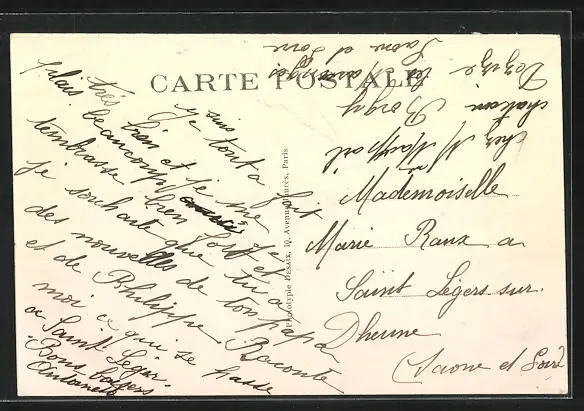 CARTE POSTALE
Je suis
tout à fait
très bien et je me
plais beaucoup
t'embrasse bien fort et
je souhaite que tu a
des nouvelles de ton papa
et de Philippe. Raconte
moi ce qui se passe
a Saint Léger.
Bons baisers
Antoinette
Phototypie DESAIX, 10, Avenue, Paris
Mademoiselle
Marie Raux a
Saint Légers sur.
Dheune
Saone et Loire
chez M
chateau
Saone et Loire